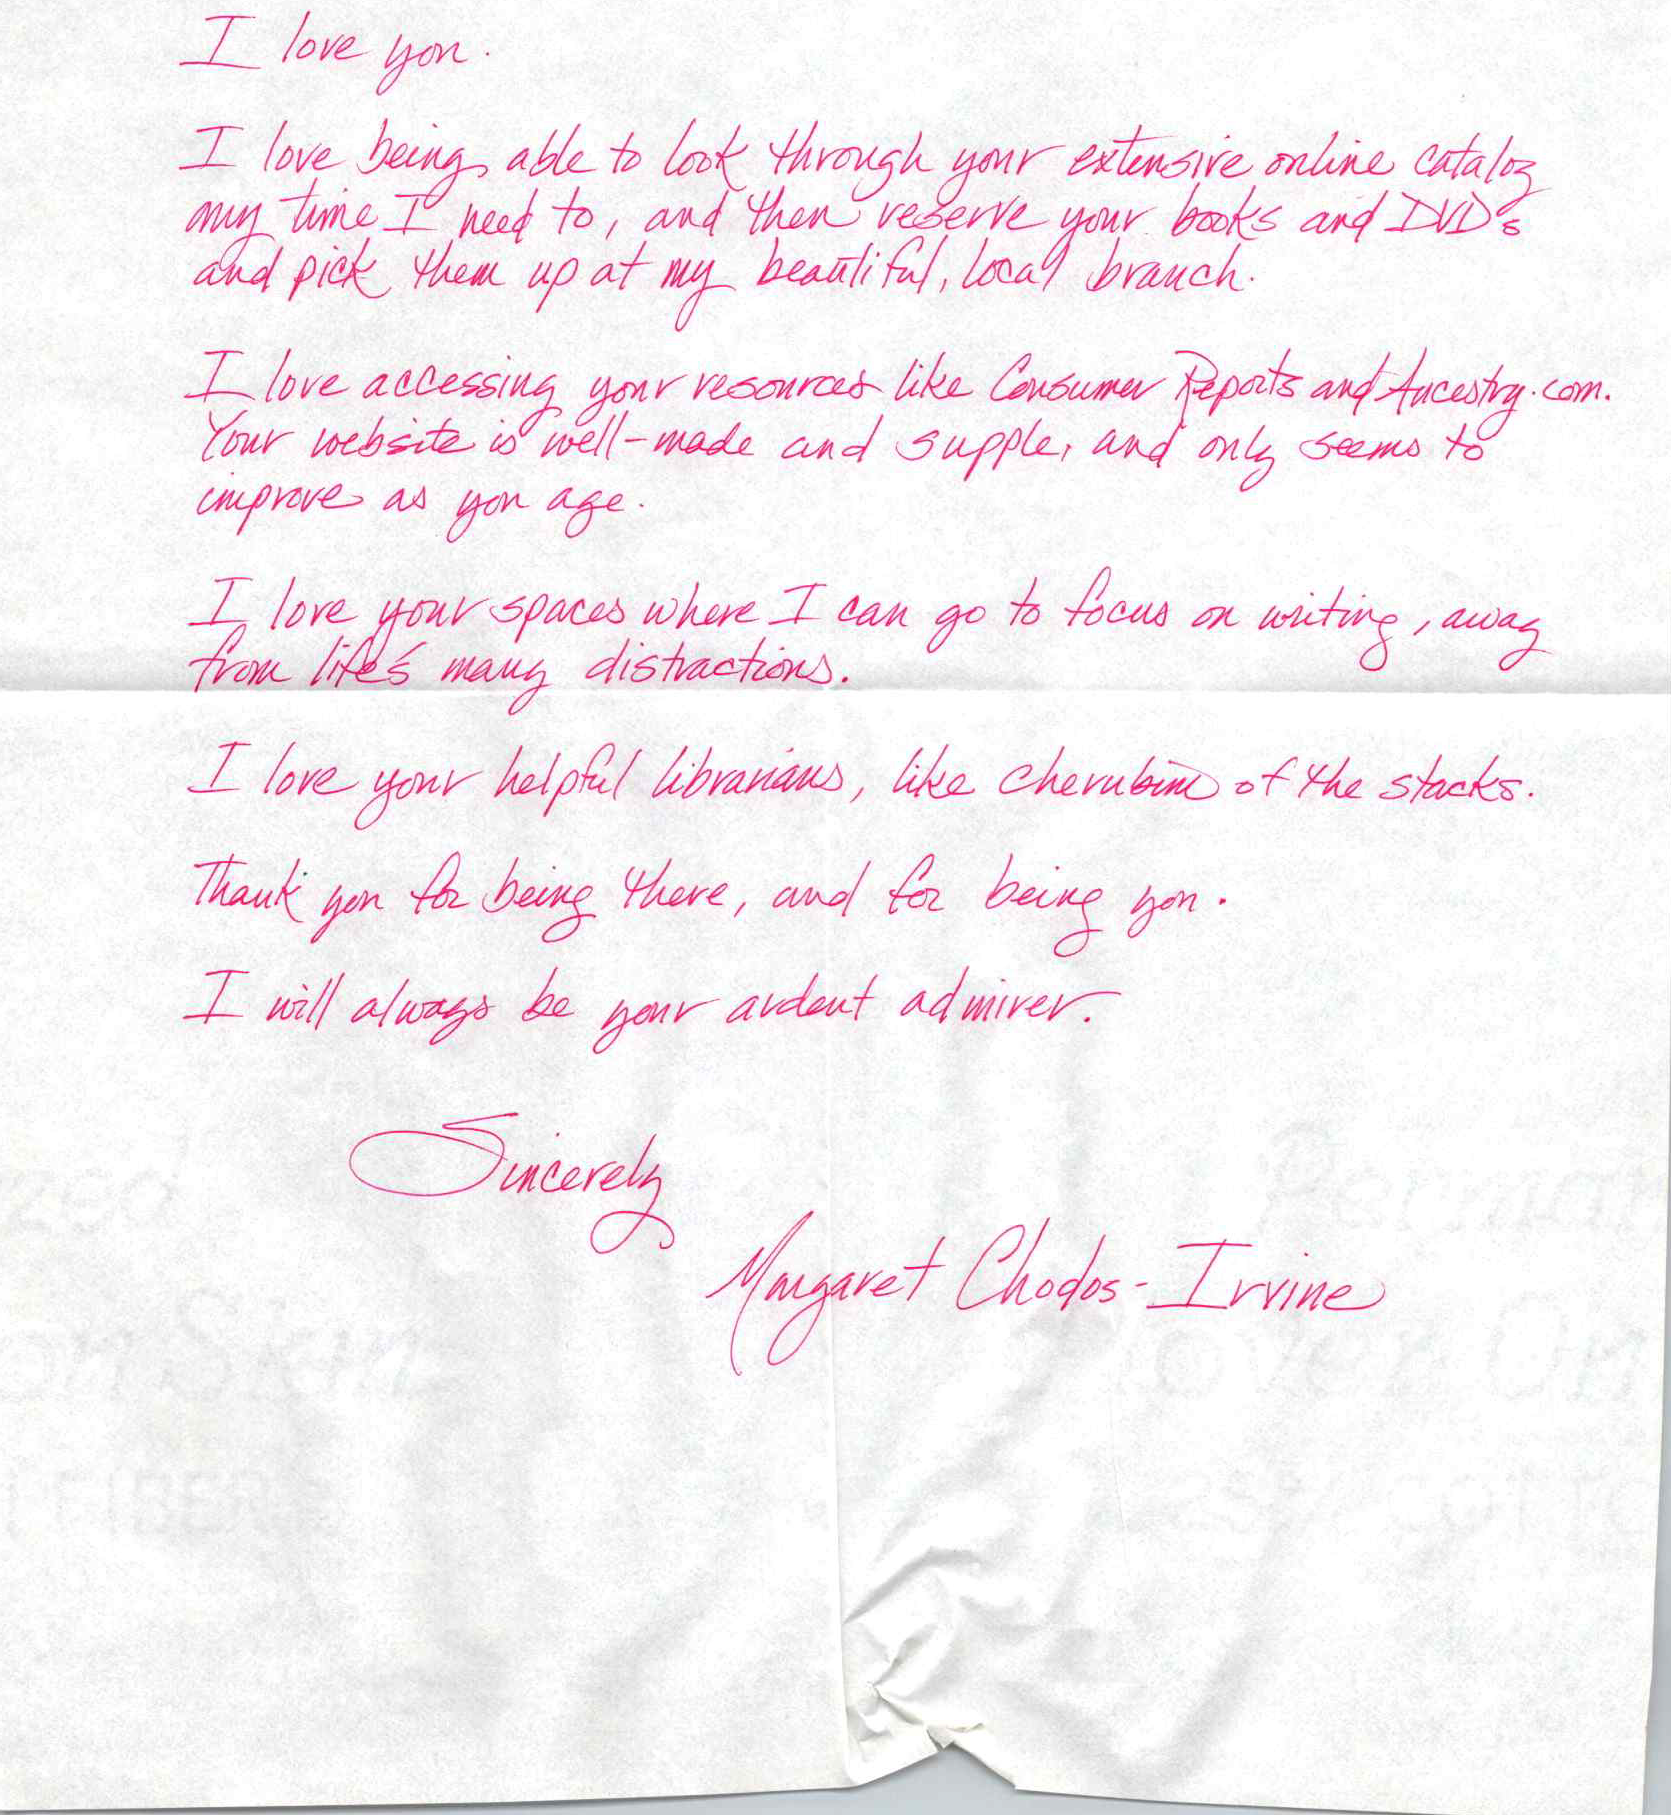 I love you.
I love being able to look through your extensive online catalog
any time I need to, and then reserve your books and DVD's
and pick them up at my beautiful, local branch.
I love accessing your resources like Consumer Reports and Ancestry.com.
Your website is well-made and supple, and only seems to
improve as you age.
I love your spaces where I can go to focus on writing, away
from life's many distractions.
I love your helpful librarians, like cherubim of the stacks.
Thank you for being there, and for being you.
I will always be your ardent admirer.
Sincerely
Margaret Chodos-Irvine